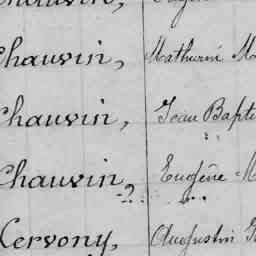 Chauvin, Mathurin
Chauvin, Jean Bapti
Chauvin, Eugène M
Kervony, Augustin